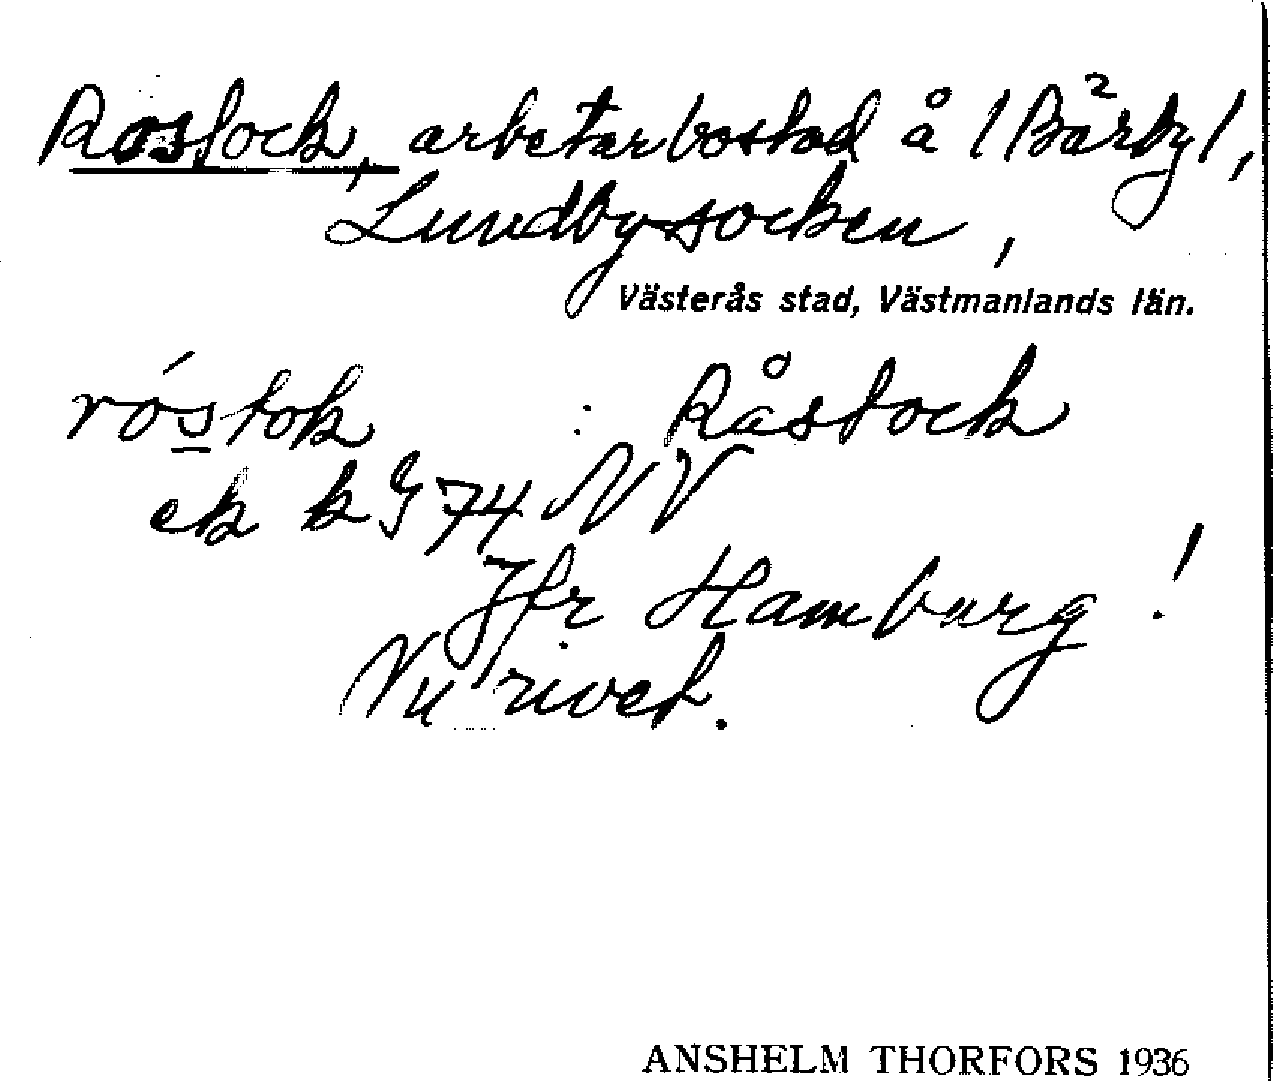 Rostock, arbetarbostad å /Bärby/,
Lundby socken,
Västerås stad, Västmanlands län.
róstok : Råstock
ek k J 74 NV
Jfr Hamburg!
Nu rivet.
ANSHELM THORFORS 1936